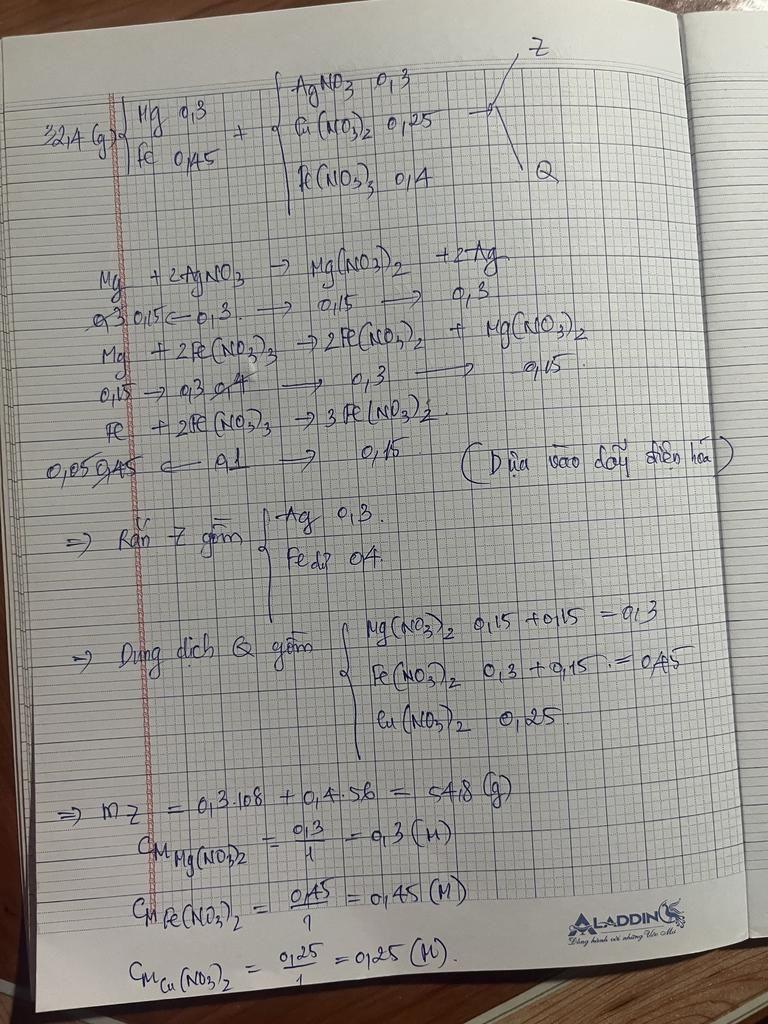 Z
32,4 (g) { Mg 0,3 + { AgNO3 0,3
Cu(NO3)2 0,25 →
Fe 0,45
Fe(NO3)3 0,4
Q
Mg + 2AgNO3 → Mg(NO3)2 + 2Ag
0,3 0,15 ← 0,3 → 0,15 → 0,3
Mg + 2Fe(NO3)3 → 2Fe(NO3)2 + Mg(NO3)2
0,15 → 0,3 0,4 → 0,3 → 0,15
Fe + 2Fe(NO3)3 → 3Fe(NO3)2
0,05 0,45 ← 0,1 → 0,15 (Dựa vào dãy điện hóa)
⇒ Rắn Z gồm { Ag 0,3
Fe dư 0,4
⇒ Dung dịch Q gồm { Mg(NO3)2 0,15 + 0,15 = 0,3
Fe(NO3)2 0,3 + 0,15 = 0,45
Cu(NO3)2 0,25
⇒ mZ = 0,3.108 + 0,4.56 = 54,8 (g)
CM Mg(NO3)2 = 0,3/1 = 0,3 (M)
CM Fe(NO3)2 = 0,45/1 = 0,45 (M)
CM Cu(NO3)2 = 0,25/1 = 0,25 (M).
ALADDIN
Đồng hành với những Ước Mơ